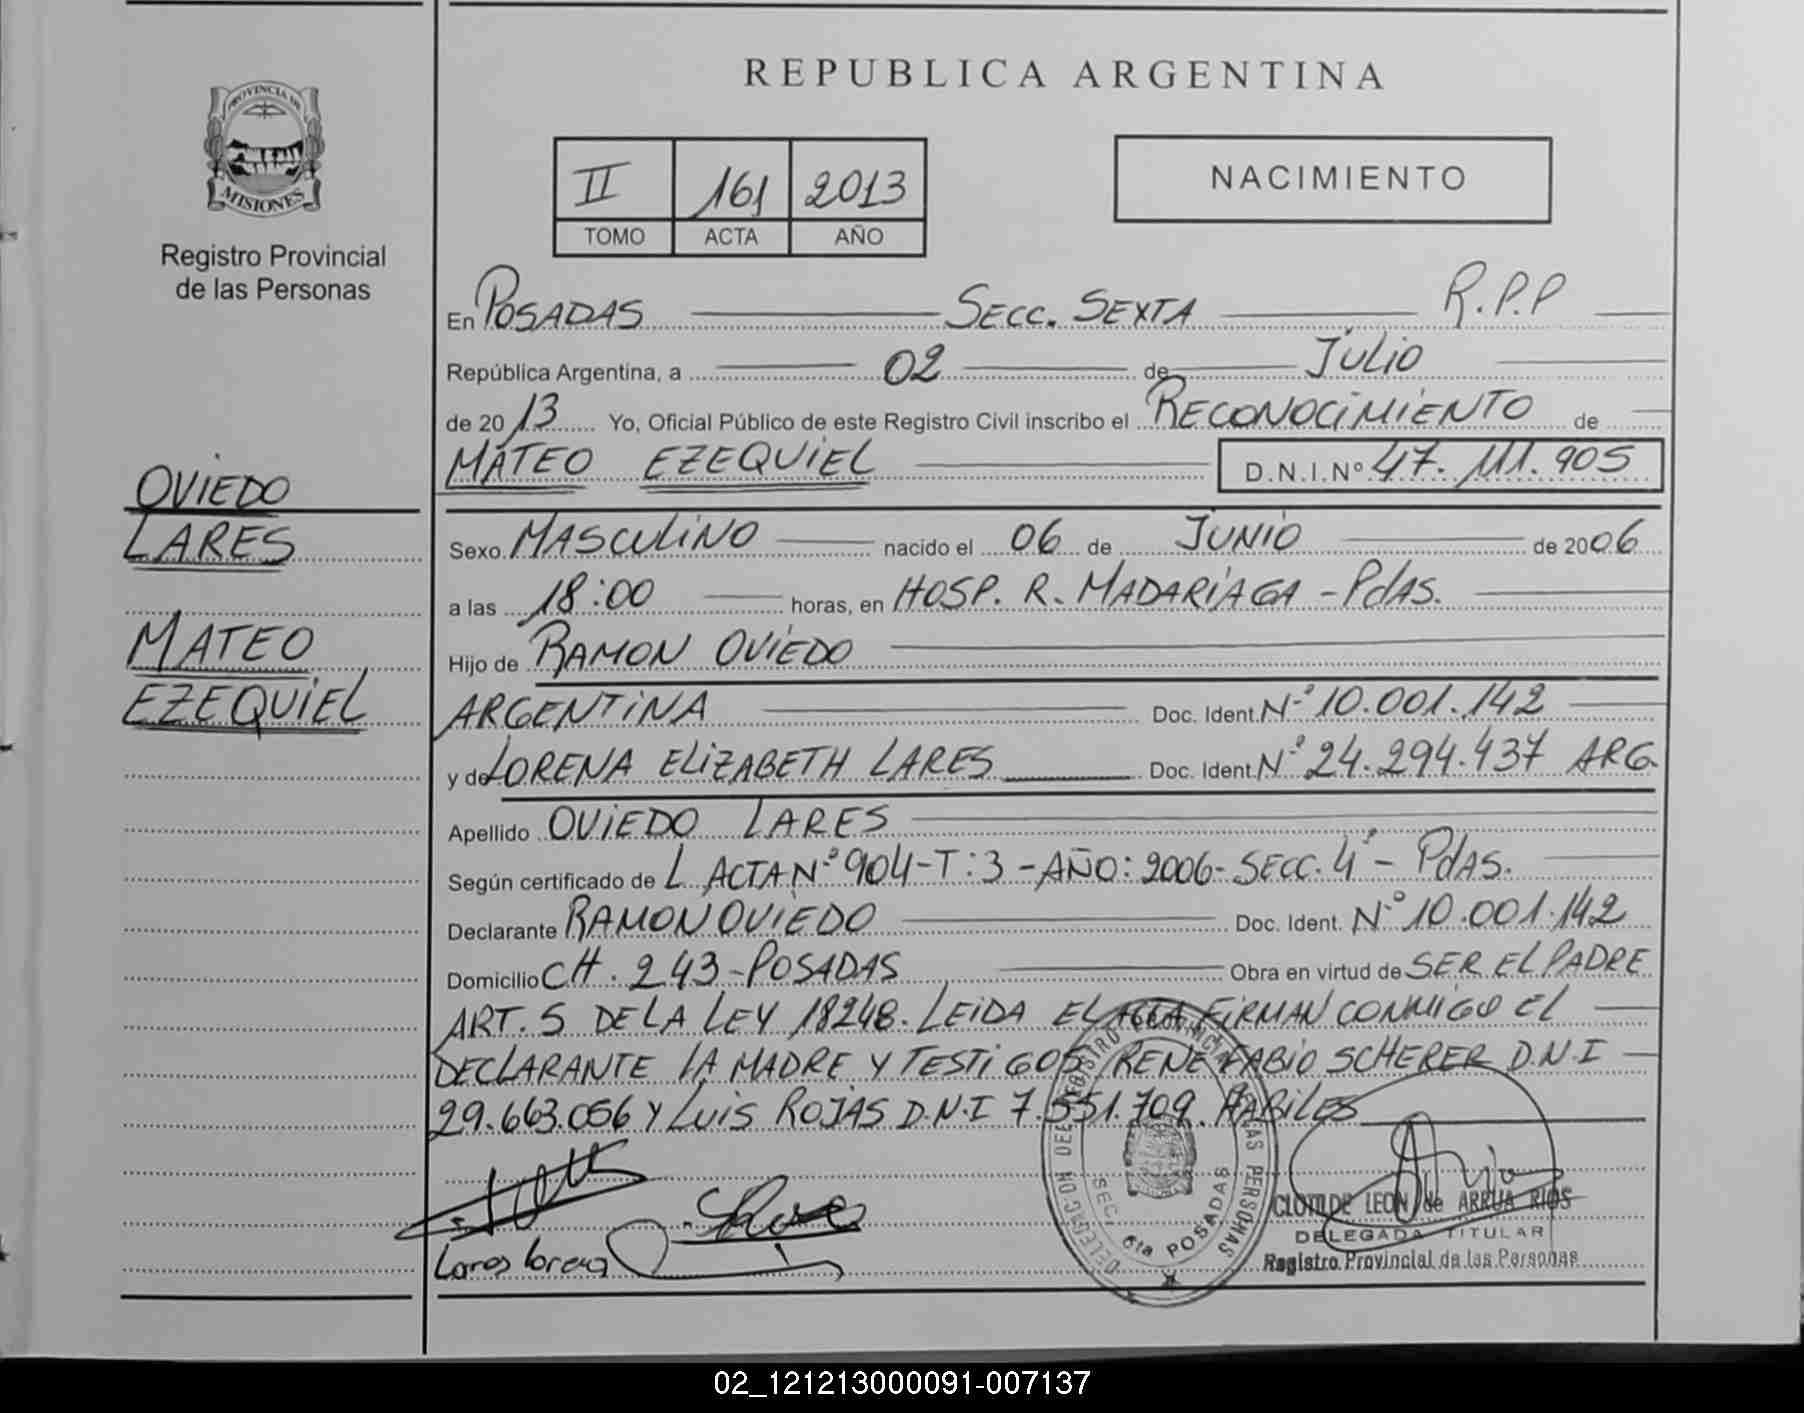 PROVINCIA DE
MISIONES
Registro Provincial
de las Personas
OVIEDO
LARES
MATEO
EZEQUIEL
REPUBLICA ARGENTINA
II 161 2013
TOMO ACTA AÑO
NACIMIENTO
En POSADAS SECC. SEXTA R.P.P
República Argentina, a 02 de JULIO
de 2013 Yo, Oficial Público de este Registro Civil inscribo el RECONOCIMIENTO de
MATEO EZEQUIEL D.N.I.Nº 47.111.905
Sexo MASCULINO nacido el 06 de JUNIO de 2006
a las 18:00 horas, en HOSP. R. MADARIAGA - PdAS.
Hijo de RAMON OVIEDO
ARGENTINA Doc. Ident. Nº 10.001.142
y de LORENA ELIZABETH LARES Doc. Ident. Nº 24.294.437 ARG.
Apellido OVIEDO LARES
Según certificado de L ACTA Nº 904-T:3-AÑO:2006-SECC.4ª- PdAS.
Declarante RAMON OVIEDO Doc. Ident. Nº 10.001.142
Domicilio CH. 243-POSADAS Obra en virtud de SER EL PADRE
ART. 5 DE LA LEY 18248. LEIDA EL ACTA FIRMAN CONMIGO EL
DECLARANTE LA MADRE Y TESTIGOS RENE FABIO SCHERER D.N.I
29.663.056 Y LUIS ROJAS D.N.I 7.551.709. HABILES
Lares Lorena
DELEGACION DEL REGISTRO PROVINCIAL DE LAS PERSONAS
SECC. 6ta POSADAS
CLOTILDE LEON de ARRUA RIOS
DELEGADA TITULAR
Registro Provincial de las Personas
02_121213000091-007137